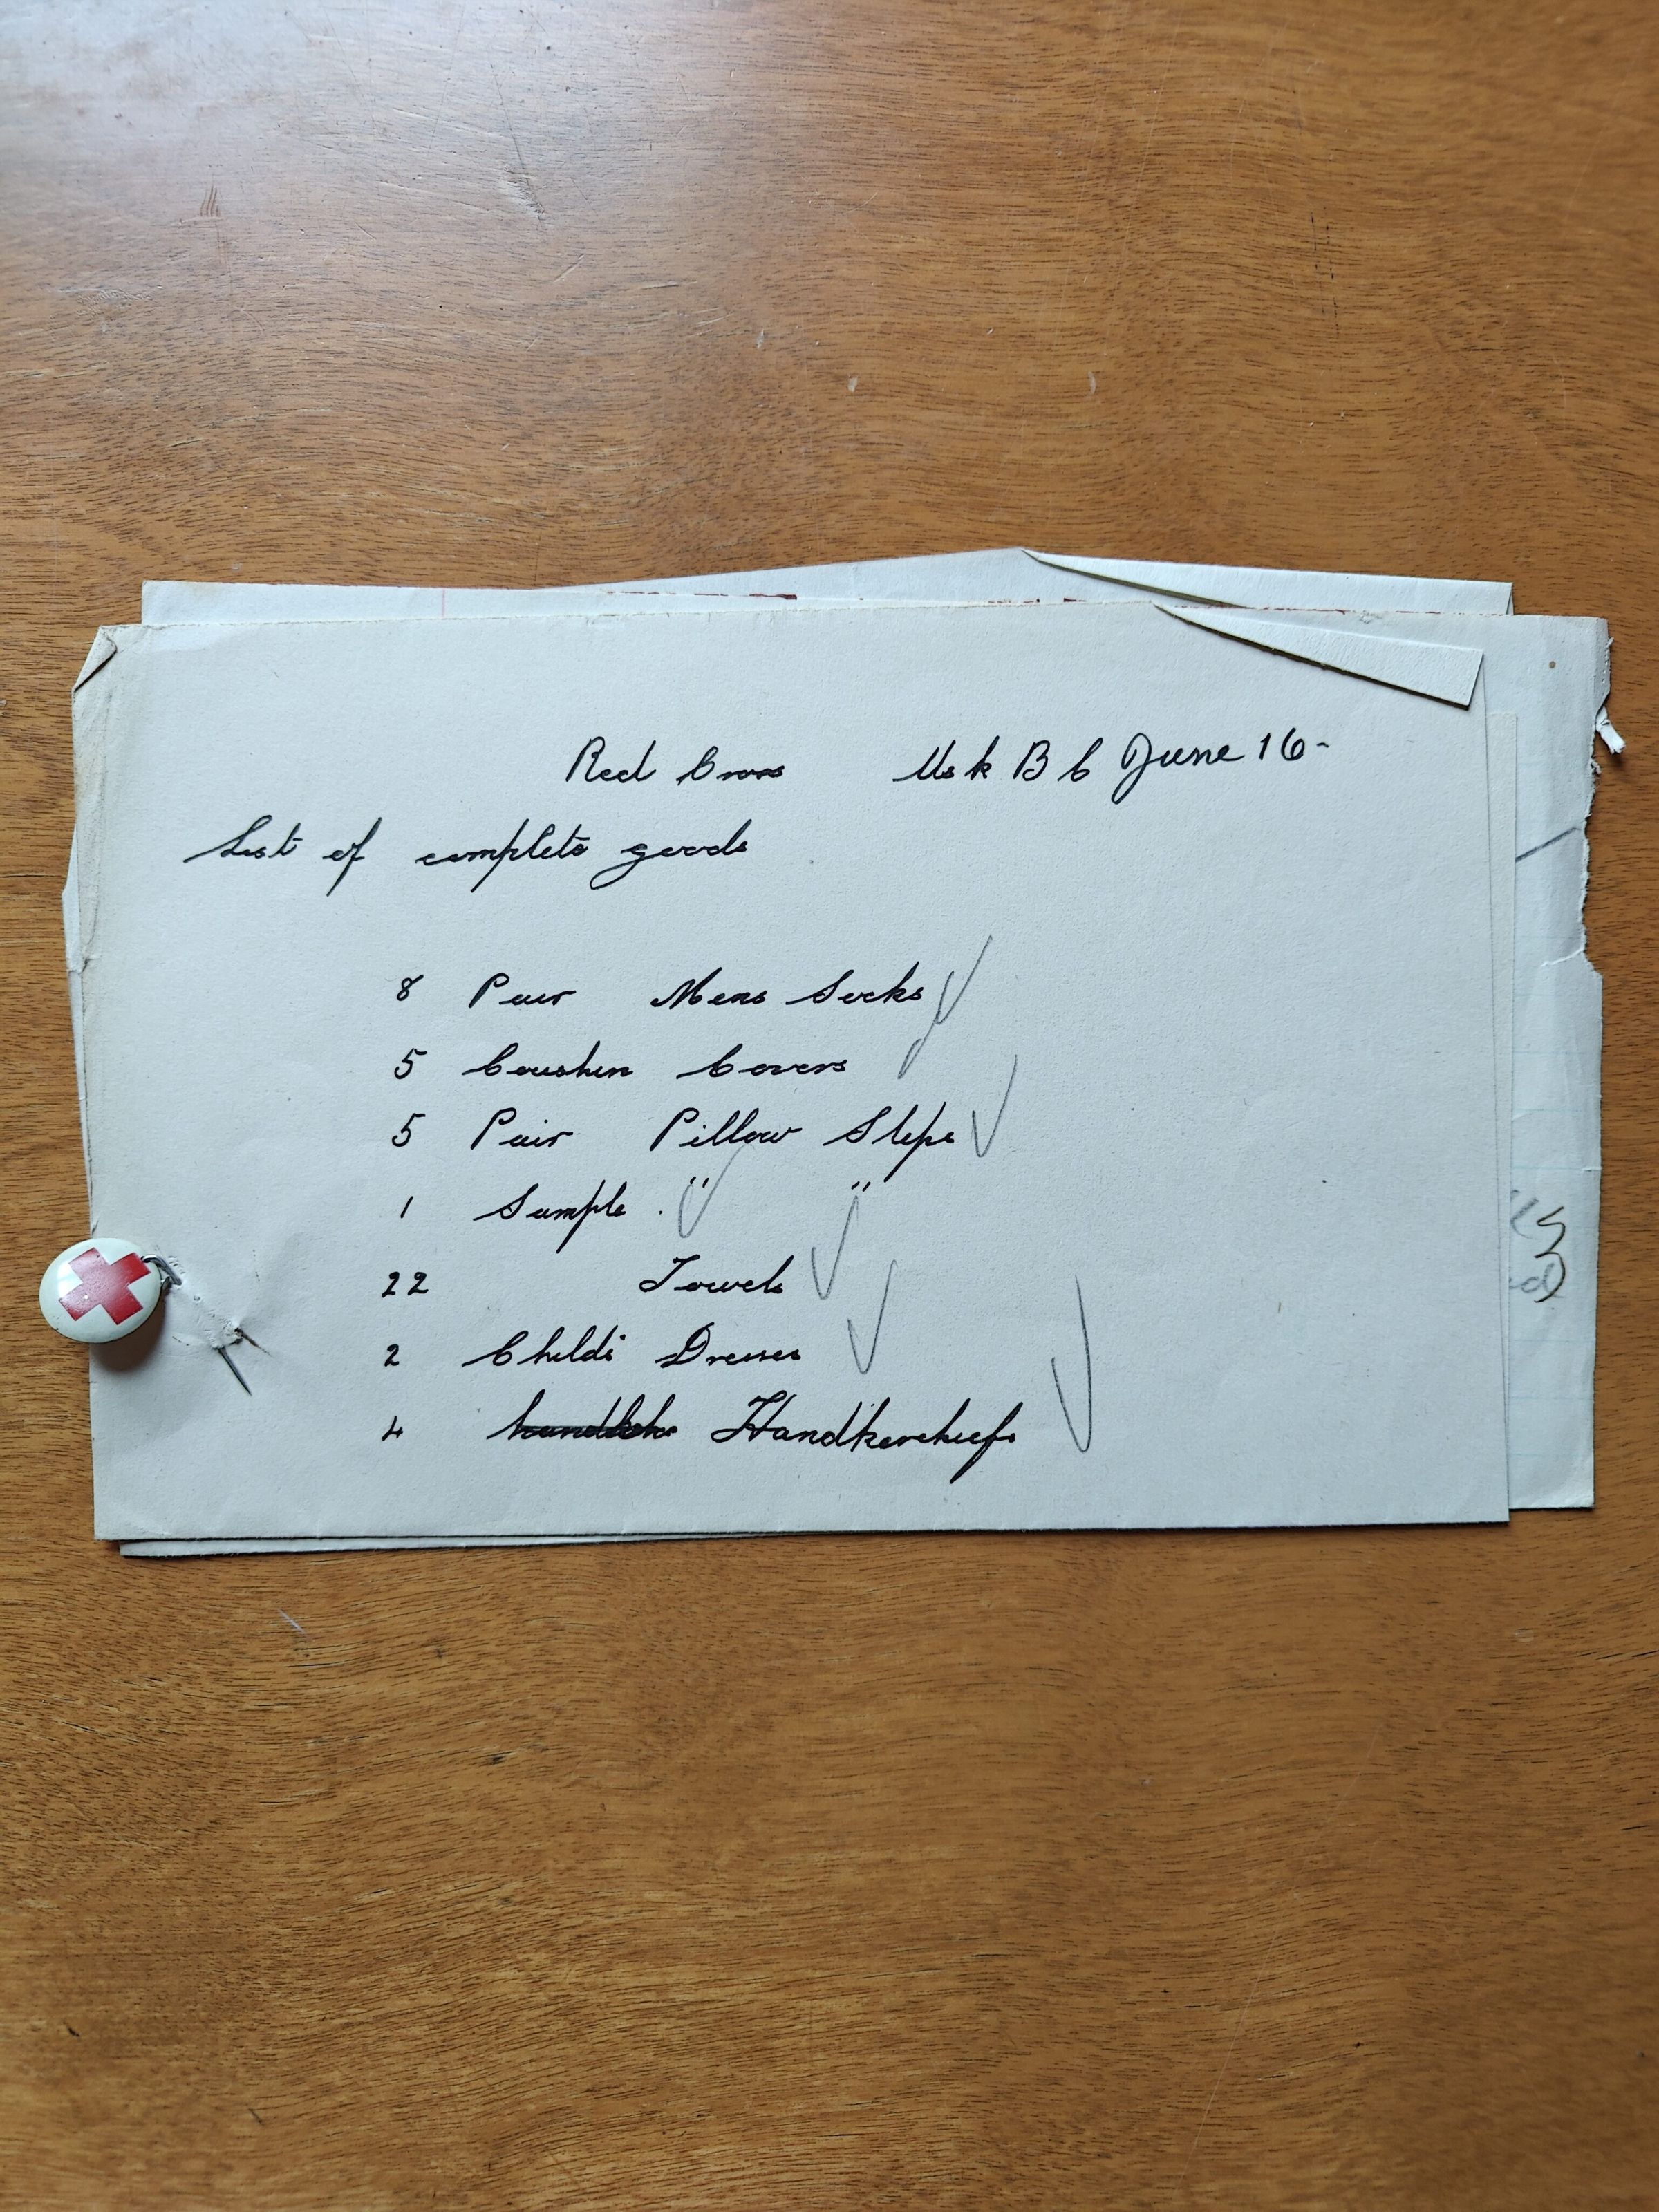 Red Cross Usk B C June 16-
List of complete goods
8 Pair Mens Socks
5 Coushin Covers
5 Pair Pillow Slips
1 Sample " "
22 Towels
2 Childs Dresses
4 Handkerchiefs